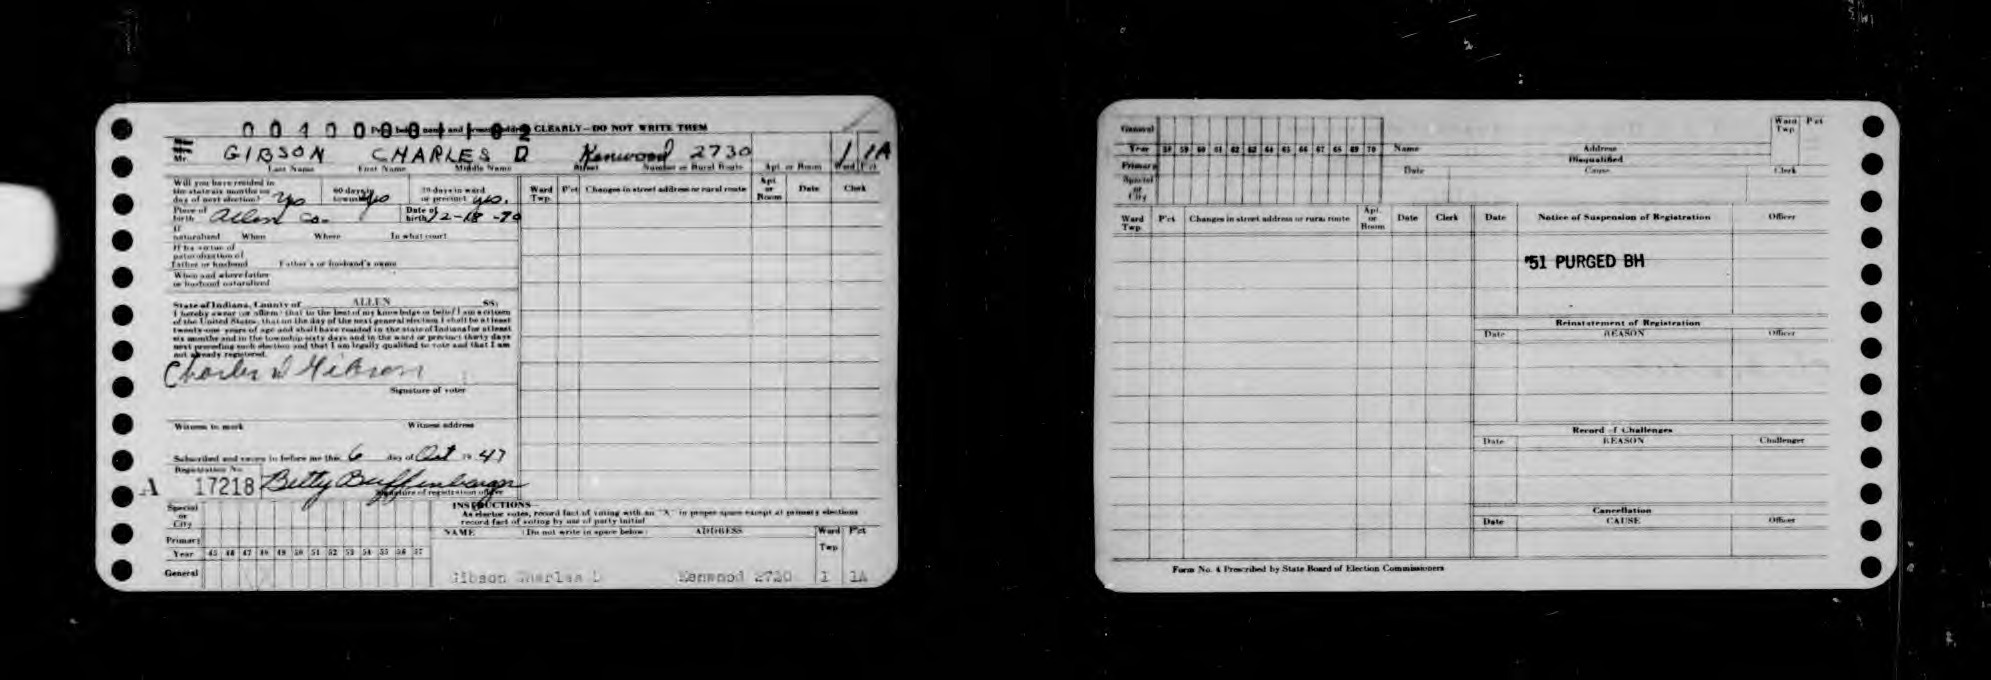 CLEARLY—DO NOT WRITE THEM
Mr. GIBSON CHARLES D Kenwood 2730 1 1A
Last Name First Name Middle Name Street Number or Rural Route Apt. or Room Ward P'ct
Will you have resided in
the state six months on
day of next election? yes
60 days in
township yes
30 days in ward
or precinct yes.
Place of
birth Allen Co.
Date of
birth
If
naturalized When Where In what court
If by virtue of
naturalization of
father or husband Father's or husband's name
When and where father
or husband naturalized
State of Indiana, County of ALLEN SS:
I hereby swear (or affirm) that to the best of my knowledge or belief I am a citizen
of the United States, that on the day of the next general election I shall be at least
twenty-one years of age and shall have resided in the state of Indiana for at least
six months and in the township sixty days and in the ward or precinct thirty days
next preceding such election and that I am legally qualified to vote and that I am
not already registered.
Charles D Gibson
Signature of voter
Witness to mark Witness address
Subscribed and sworn to before me this 6 day of Oct 19 47
Registration No.
A 17218 Betty
Signature of registration officer
Ward
Twp. P'ct Changes in street address or rural route Apt.
or
Room Date Clerk
INSTRUCTIONS—
As elector votes, record fact of voting with an "X" in proper space except at primary elections
record fact of voting by use of party initial
Special
or
City
Primary
Year 45 46 47 48 49 50 51 52 53 54 55 56 57
General
NAME (Do not write in space below) ADDRESS Ward
Twp P'ct
Gibson Charles D Kenwood 2730 1 1A
General
Year 58 59 60 61 62 63 64 65 66 67 68 69 70
Primary
Special
or
City
Name Address
Ward
Twp. P'ct
Disqualified
Date Cause Clerk
Ward
Twp. P'ct Changes in street address or rural route Apt.
or
Room Date Clerk
Date Notice of Suspension of Registration Officer
'51 PURGED BH
Reinstatement of Registration
Date REASON Officer
Record of Challenges
Date REASON Challenger
Cancellation
Date CAUSE Officer
Form No. 4 Prescribed by State Board of Election Commissioners